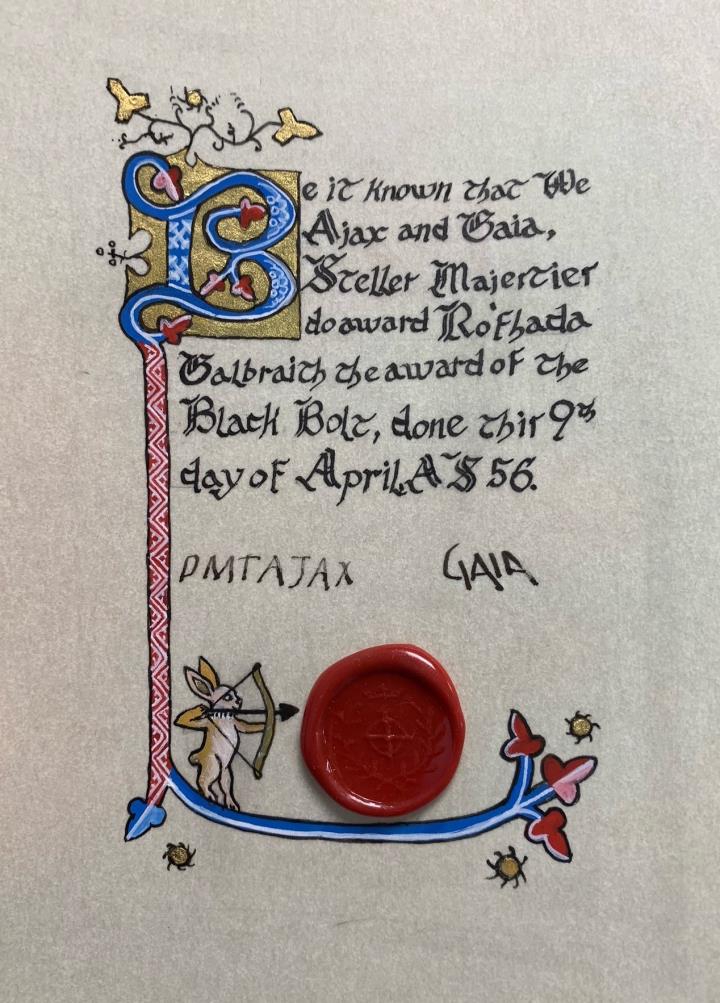 Be it known that We
Ajax and Gaia,
Steller Majesties
do award Ro'fhada
Galbraith the award of the
Black Bolt, done this 9th
day of April, A~S 56.
DMTAJAX GAIA